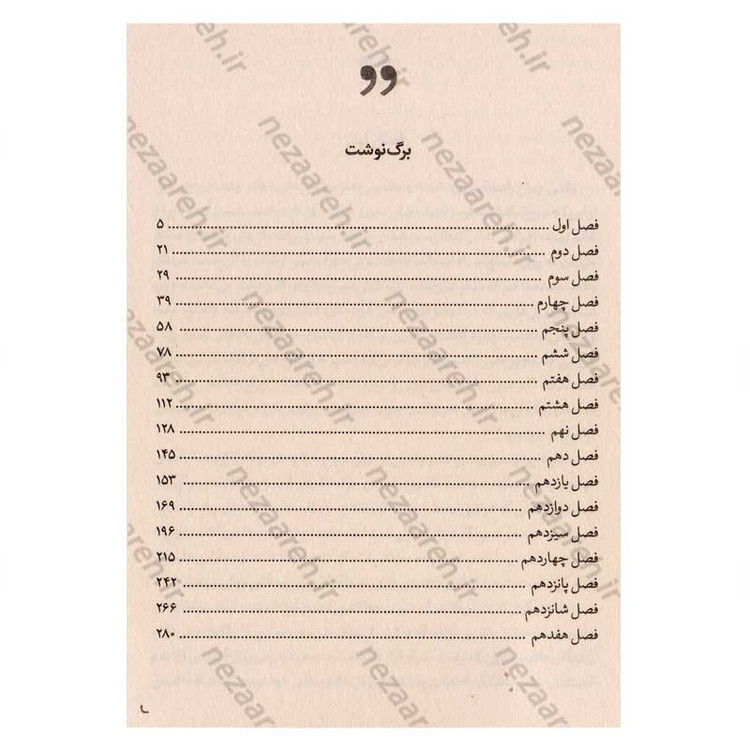 برگ‌نوشت
فصل اول ........ ۵
فصل دوم ........ ۲۱
فصل سوم ........ ۲۹
فصل چهارم ........ ۳۹
فصل پنجم ........ ۵۸
فصل ششم ........ ۷۸
فصل هفتم ........ ۹۳
فصل هشتم ........ ۱۱۲
فصل نهم ........ ۱۲۸
فصل دهم ........ ۱۴۵
فصل یازدهم ........ ۱۵۳
فصل دوازدهم ........ ۱۶۹
فصل سیزدهم ........ ۱۹۶
فصل چهاردهم ........ ۲۱۵
فصل پانزدهم ........ ۲۴۲
فصل شانزدهم ........ ۲۶۶
فصل هفدهم ........ ۲۸۰
nezaareh.ir